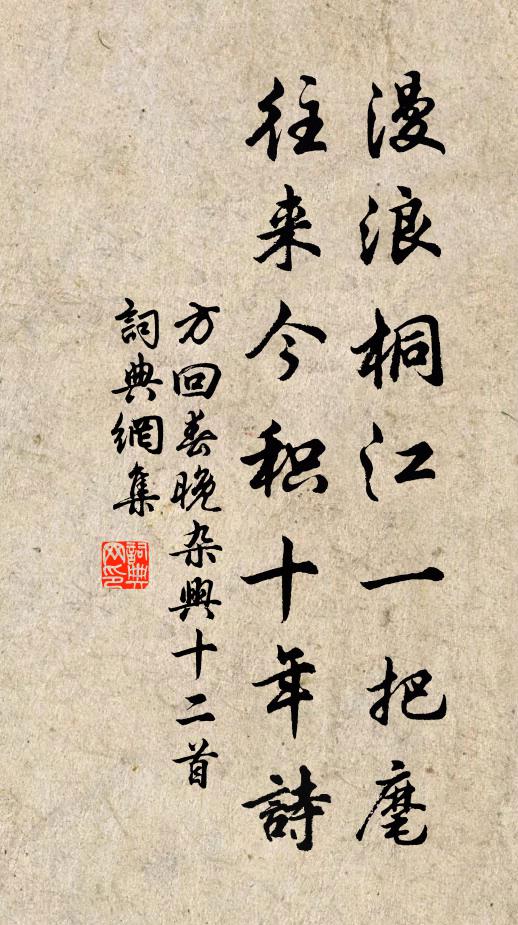 漫浪桐江一把麾
往来今积十年詩
方回春晚杂興十二首
詞典網集
詞典网印